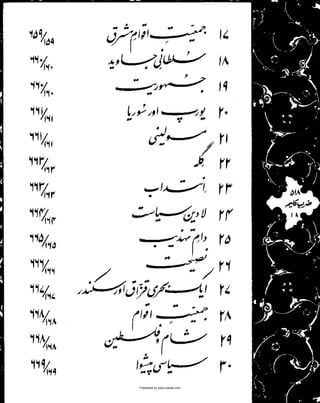 ۱۷ جمعیتِ اقوامِ مشرق ۶۵۹/۱۵۹
۱۸ سلطانیِ جاوید ۶۶۰/۱۶۰
۱۹ جمہوریت ۶۶۰/۱۶۰
۲۰ یورپ اور سُوریا ۶۶۱/۱۶۱
۲۱ مسولینی ۶۶۱/۱۶۱
۲۲ گلہ ۶۶۳/۱۶۳
۲۳ انتداب ۶۶۳/۱۶۳
۲۴ لادین سیاست ۶۶۴/۱۶۴
۲۵ دامِ تہذیب ۶۶۵/۱۶۵
۲۶ نصیحت ۶۶۶/۱۶۶
۲۷ ایک بحری قزاق اور سکندر ۶۶۷/۱۶۷
۲۸ جمعیتِ اقوام ۶۶۸/۱۶۸
۲۹ شام و فلسطین ۶۶۸/۱۶۸
۳۰ سیاسی پیشوا ۶۶۹/۱۶۹
۵۱۸
ضربِ کلیم
۱۸